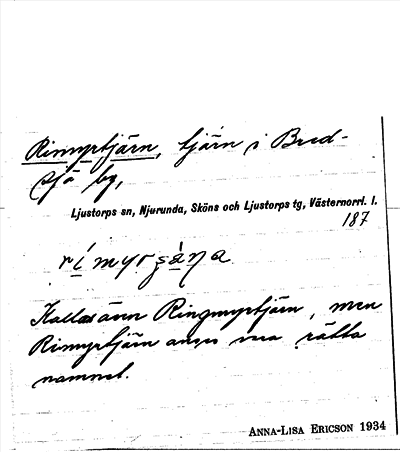 Rimyrtjärn, tjärn i Bred-
sjö by,
Ljustorps sn, Njurunda, Sköns och Ljustorps tg, Västernorrl. l.
187
Kallas även Ringmyrtjärn, men
Rimyrtjärn anses vara rätta
namnet.
ANNA-LISA ERICSON 1934